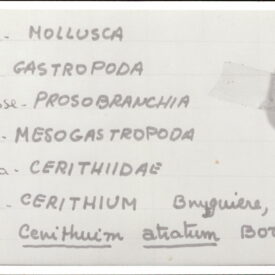 - MOLLUSCA
GASTROPODA
sse - PROSOBRANCHIA
- MESOGASTROPODA
a - CERITHIIDAE
- CERITHIUM Bruguiere,
Cerithuim atratum Bor